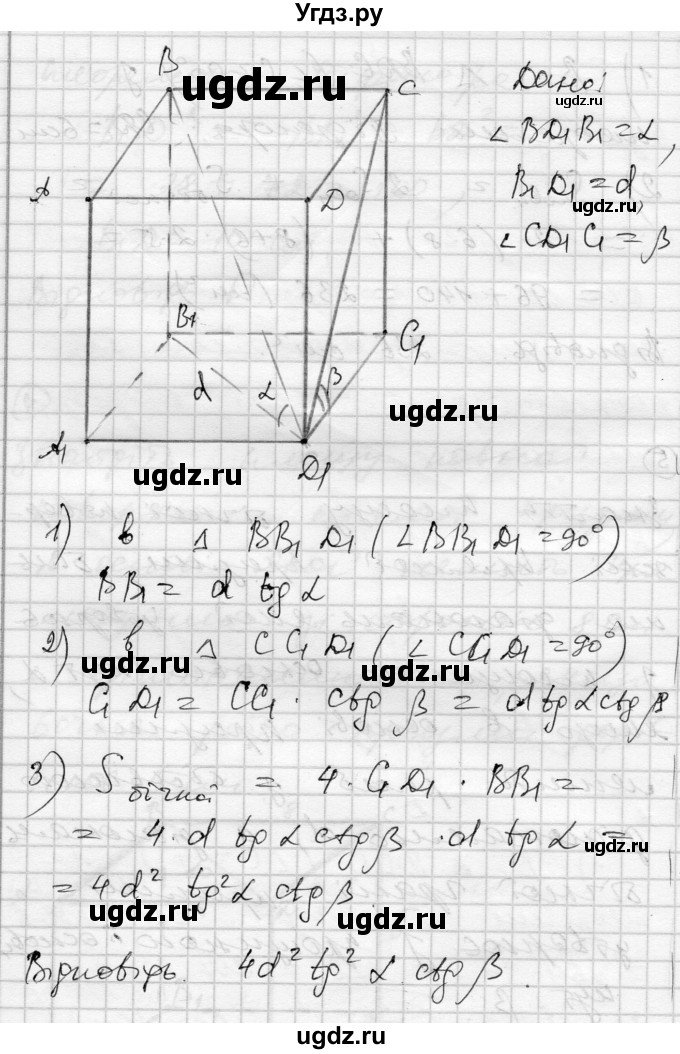 Угдз.ру
B
ugdz.ru
C
Дано:
ugdz.ru
∠BD₁B₁ = α,
A
D
B₁D₁ = d,
ugdz.ru
∠CD₁C₁ = β
B₁
C₁
d
α
β
ugdz.ru
A₁
D₁
ugdz.ru
1) в △ BB₁D₁ (∠BB₁D₁ = 90°)
BB₁ = d tgα
ugdz.ru
2) в △ CC₁D₁ (∠CC₁D₁ = 90°)
ugdz.ru
ugdz.ru
C₁D₁ = CC₁ · ctg β = d tgα ctg β
3) Sбічної = 4 · C₁D₁ · BB₁ =
= 4 · d tg α ctg β · d tg α =
ugdz.ru
= 4d² tg²α ctg β
ugdz.ru
ugdz.ru
Відповідь. 4d² tg² α ctg β.
ugdz.ru